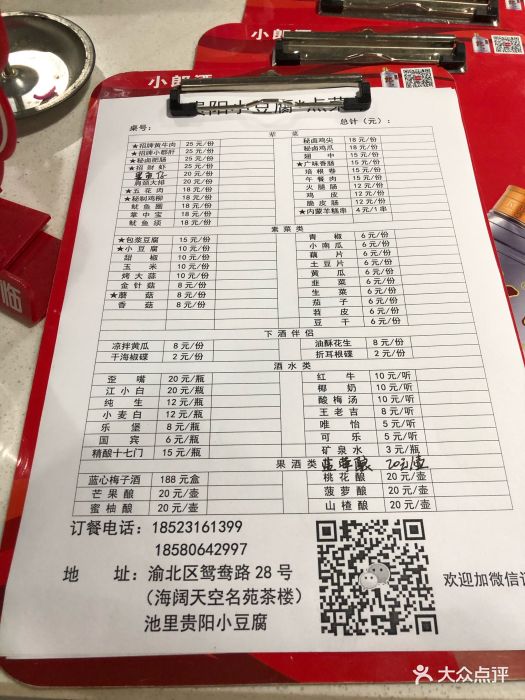 小郎酒
贵阳小豆腐*点菜
桌号： 总计（元）：
荤菜
★招牌黄牛肉 25 元/份 秘卤鸡尖 18 元/份
★招牌小郡肝 25 元/份 秘卤鸡爪 18 元/份
★秘卤肥肠 25 元/份 翅中 18 元/份
★招财虾 25 元/份 ★广味香肠 15 元/份
20 元/份 培根卷 15 元/份
肩颈大排 20 元/份 午餐肉 15 元/份
★五花肉 18 元/份 火腿肠 12 元/份
★秘制鸡柳 18 元/份 鸡皮 12 元/份
鱿鱼圈 18 元/份 脆皮肠 12 元/份
掌中宝 18 元/份 ★内蒙羊糕串 4 元/1串
鱿鱼须 18 元/份
素菜类
★包浆豆腐 15 元/份 青椒 6 元/份
★小豆腐 10 元/份 小南瓜 6 元/份
甜椒 10 元/份 藕片 6 元/份
玉米 10 元/份 土豆片 6 元/份
烤大蒜 10 元/份 黄瓜 6 元/份
金针菇 8 元/份 韭菜 6 元/份
★蘑菇 8 元/份 生菜 6 元/份
香菇 8 元/份 茄子 6 元/份
苕皮 6 元/份
豆干 6 元/份
下酒伴侣
凉拌黄瓜 8 元/份 油酥花生 8 元/份
干海椒碟 2 元/份 折耳根碟 2 元/份
酒水类
歪嘴 20 元/瓶 红牛 10 元/听
江小白 20 元/瓶 椰奶 10 元/听
纯生 12 元/瓶 酸梅汤 10 元/听
小麦白 12 元/瓶 王老吉 8 元/听
乐堡 8 元/瓶 唯怡 5 元/听
国宾 6 元/瓶 可乐 5 元/听
精酿十七门 15 元/瓶 矿泉水 3 元/瓶
果酒类 20元/壶
蓝心梅子酒 188 元盒 桃花酿 20 元/壶
芒果酿 20 元/壶 菠萝酿 20 元/壶
蜜柚酿 20 元/壶 山楂酿 20 元/壶
订餐电话：18523161399
18580642997
地址：渝北区鸳鸯路 28 号
（海阔天空名苑茶楼）
池里贵阳小豆腐
欢迎加微信订
大众点评